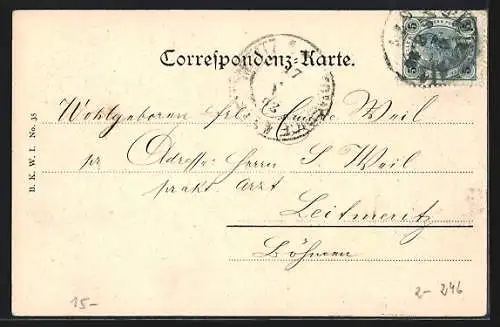 Correspondenz-Karte.
Wohlgeboren Frl. Weil
pr Adresse: Herrn S Weil
prakt. Arzt
Leitmeritz
Böhmen
B. K. W. I. No. 35
5 5
15-
2- 246